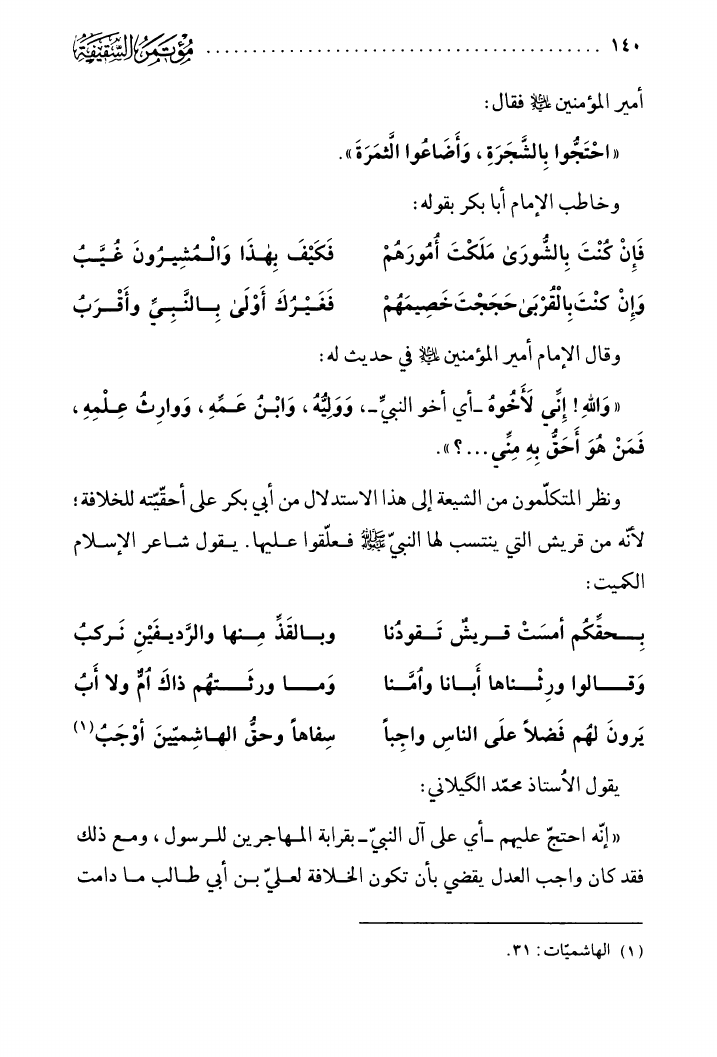 ١٤٠ ........................................ مُؤتَمَرُ السَّقِيفَةِ
أمير المؤمنين ﷷ فقال:
«احْتَجُّوا بِالشَّجَرَةِ ، وَأَضَاعُوا الَّثمَرَةَ».
وخاطب الإمام أبا بكر بقوله:
فَإِنْ كُنْتَ بِالشُّورَىٰ مَلَكْتَ أُمُورَهُمْ فَكَيْفَ بِهٰذَا وَالْمُشِيرُونَ غُيَّبُ
وَإِنْ كنْتَ بِالْقُرْبَىٰ حَجَجْتَ خَصِيمَهُمْ فَغَيْرُكَ أَوْلَىٰ بِالنَّبِيِّ وأَقْرَبُ
وقال الإمام أمير المؤمنين ﷷ في حديث له:
«وَاللهِ! إِنِّي لَأَخُوهُ ـ أي أخو النبيّ ـ، وَوَلِيُّهُ، وَابْنُ عَمِّهِ، وَوارِثُ عِلْمِهِ،
فَمَنْ هُوَ أَحَقُّ بِهِ مِنِّي...؟».
ونظر المتكلّمون من الشيعة إلى هذا الاستدلال من أبي بكر على أحقيّته للخلافة؛
لأنّه من قريش التي ينتسب لها النبيّ ﷺ فعلّقوا عليها. يقول شاعر الإسلام
الكميت:
بِحقِّكُم أمسَتْ قريشٌ تَقودُنا وبالفَذِّ مِنها والرَّديفَيْنِ نَركبُ
وَقالوا ورِثْناها أَبانا واُمَّنا وَما ورثَتهُم ذاكَ اُمٌّ ولا أَبُ
يَرونَ لهُم فَضلاً علَى الناسِ واجِباً سِفاهاً وحقُّ الهاشِميّينَ أوْجَبُ(١)
يقول الاُستاذ محمّد الگيلاني:
«إنّه احتجّ عليهم ـ أي على آل النبيّ ـ بقرابة المهاجرين للرسول ، ومع ذلك
فقد كان واجب العدل يقضي بأن تكون الخلافة لعليّ بن أبي طالب ما دامت
(١) الهاشميّات: ٣١.